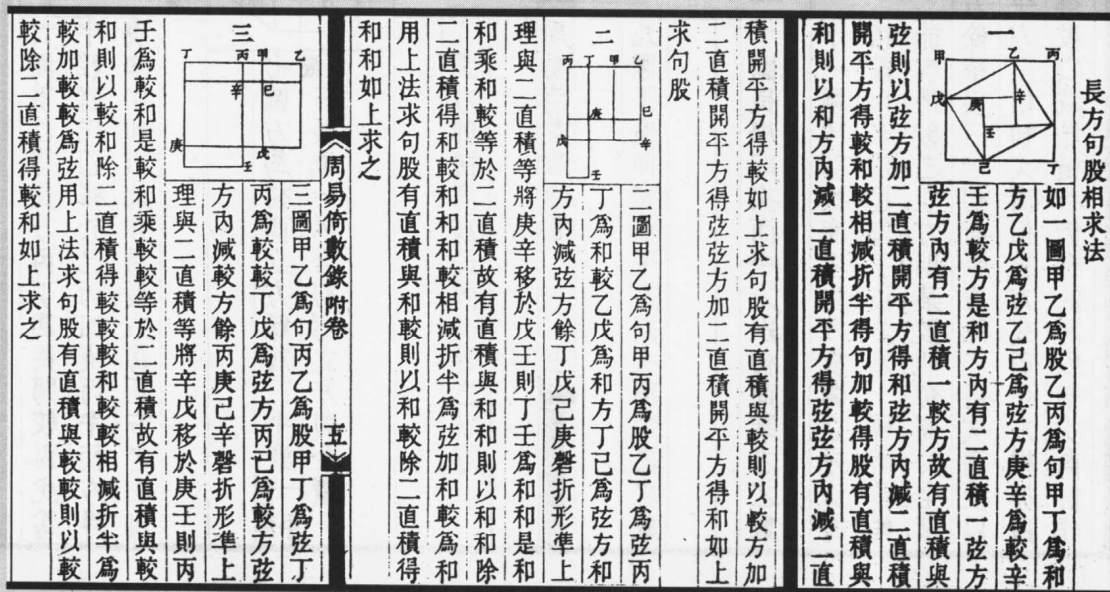 長方句股相求法
一
丙
乙
甲
辛
庚
戊
壬
己
丁
如一圖甲乙爲股乙丙爲句甲丁爲和
方乙戊爲弦乙己爲弦方庚辛爲較辛
壬爲較方是和方內有二直積一弦方
弦方內有二直積一較方故有直積與
弦則以弦方加二直積開平方得和弦方內減二直積
開平方得較和較相減折半得句加較得股有直積與
和則以和方內減二直積開平方得弦弦方內減二直
積開平方得較如上求句股有直積與較則以較方加
二直積開平方得弦弦方加二直積開平方得和如上
求句股
二
乙
甲
丁
丙
巳
庚
辛
戊
壬
二圖甲乙爲句甲丙爲股乙丁爲弦丙
丁爲和較乙戊爲和方丁己爲弦方和
方內減弦方餘丁戊己庚磬折形準上
理與二直積等將庚辛移於戊壬則丁壬爲和和是和
和乘和較等於二直積故有直積與和和則以和和除
二直積得和較和和和較相減折半爲弦加和較爲和
用上法求句股有直積與和較則以和較除二直積得
和和如上求之
周易倚數錄附卷
五
三
乙
甲
丙
丁
巳
辛
戊
庚
壬
三圖甲乙爲句丙乙爲股甲丁爲弦丁
丙爲較較丁戊爲弦方丙己爲較方弦
方內減較方餘丙庚己辛磬折形準上
理與二直積等將辛戊移於庚壬則丙
壬爲較和是較和乘較較等於二直積故有直積與較
和則以較和除二直積得較較較和較較相減折半爲
較加較較爲弦用上法求句股有直積與較較則以較
較除二直積得較和如上求之